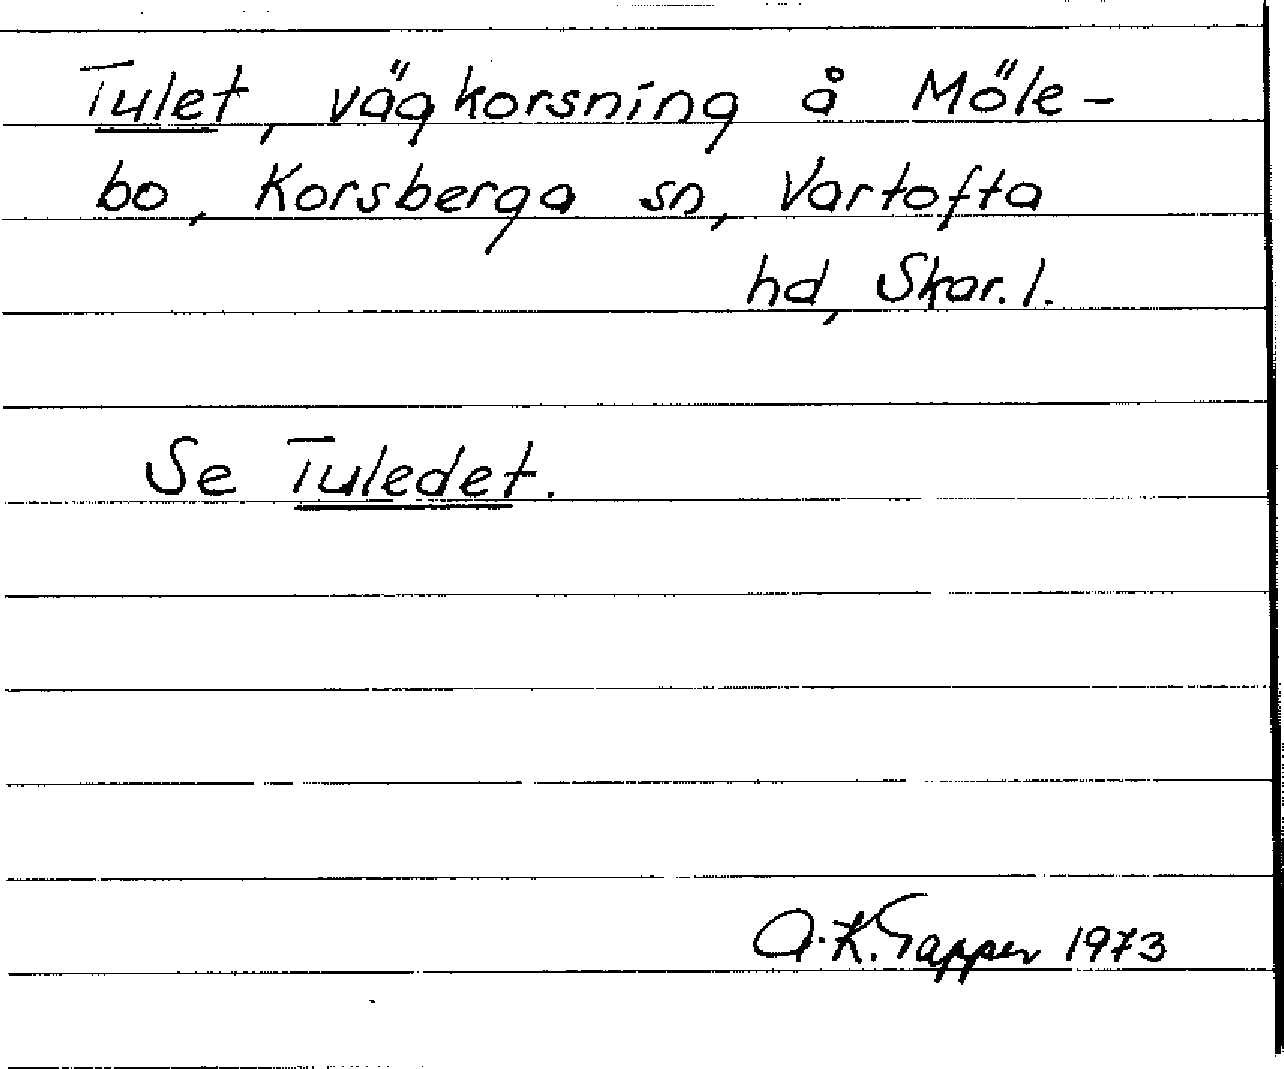 Tulet, vägkorsning å Möle-
bo, Korsberga sn, Vartofta
hd, Skar. l.
Se Tuledet.
A.K. Tapper 1973